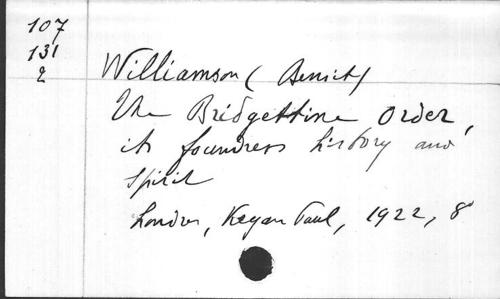 107
131
2
Williamson (Benict)
The Bridgettine Order,
its foundress history and
spirit
Londres, Kegan Paul, 1922, 8°